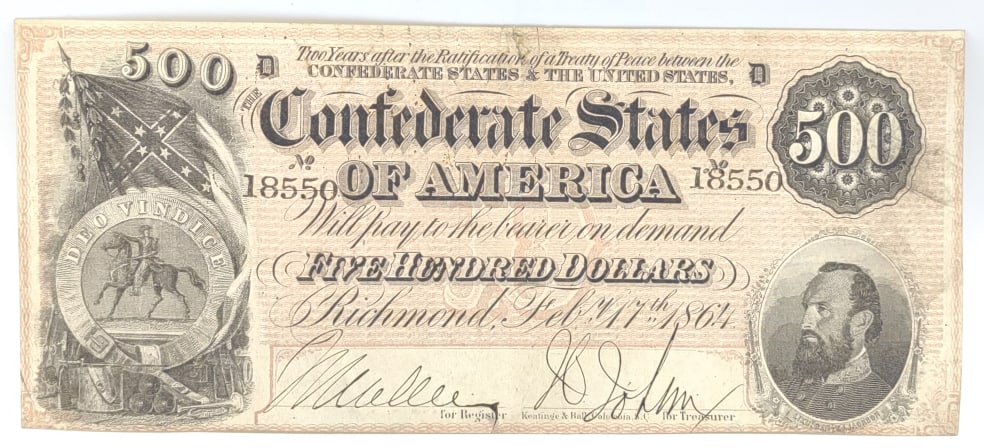 500
D
Two Years after the Ratification of a Treaty of Peace between the
CONFEDERATE STATES & THE UNITED STATES,
D
THE
Confederate States
500
No 18550
OF AMERICA
No 18550
DEO VINDICE
Will pay to the bearer on demand
FIVE HUNDRED DOLLARS
Richmond, Feby. 17th 1864.
for Register
Keatinge & Ball, Columbia, S.C.
for Treasurer